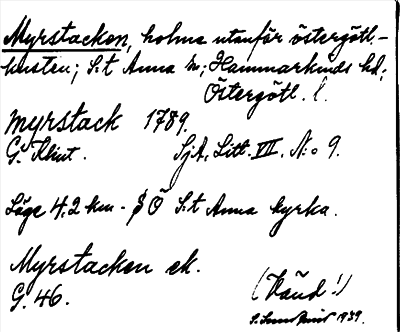 Myrstacken, holme utanför östergötl.-
kusten; S:t Anna sn; Hammarkinds hd;
Östergötl. l.
myrstack 1789.
G. Klint. SjA, Litt. VII, N:o 9.
Läge 4,2 km - Ö S:t Anna kyrka.
Myrstacken ek.
G. 46. (Känd!)
1939.